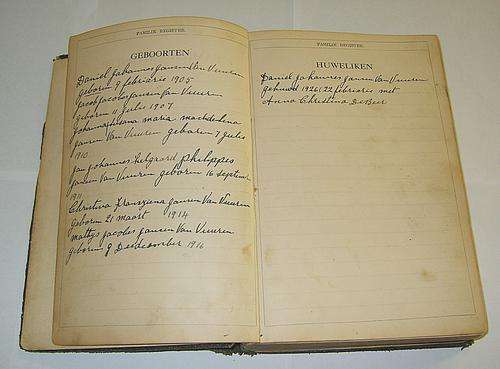 FAMILIE REGISTER.
GEBOORTEN
Daniel Johannes Jansen Van Vuuren
geboren 7 februarie 1905
Jacob Jacobus Jansen Van Vuuren
geboren 11 Julie 1907
Johanna Susana maria magdalena
Jansen Van Vuuren geboren 7 Julie
1910
Jan Johannes Helgaard philippus
Jansen Van Vuuren geboren 16 september
1911
Christina Fransiena Jansen Van Vuuren
Geboren 21 maart 1914
mattys Jacobus Jansen Van Vuuren
geboren 9 Deedcember 1916
FAMILIE REGISTER.
HUWELIKEN
Daniel Johannes Jansen Van Vuuren
gehuwd 1926, 22 februarie met
Anna Christina De Beer